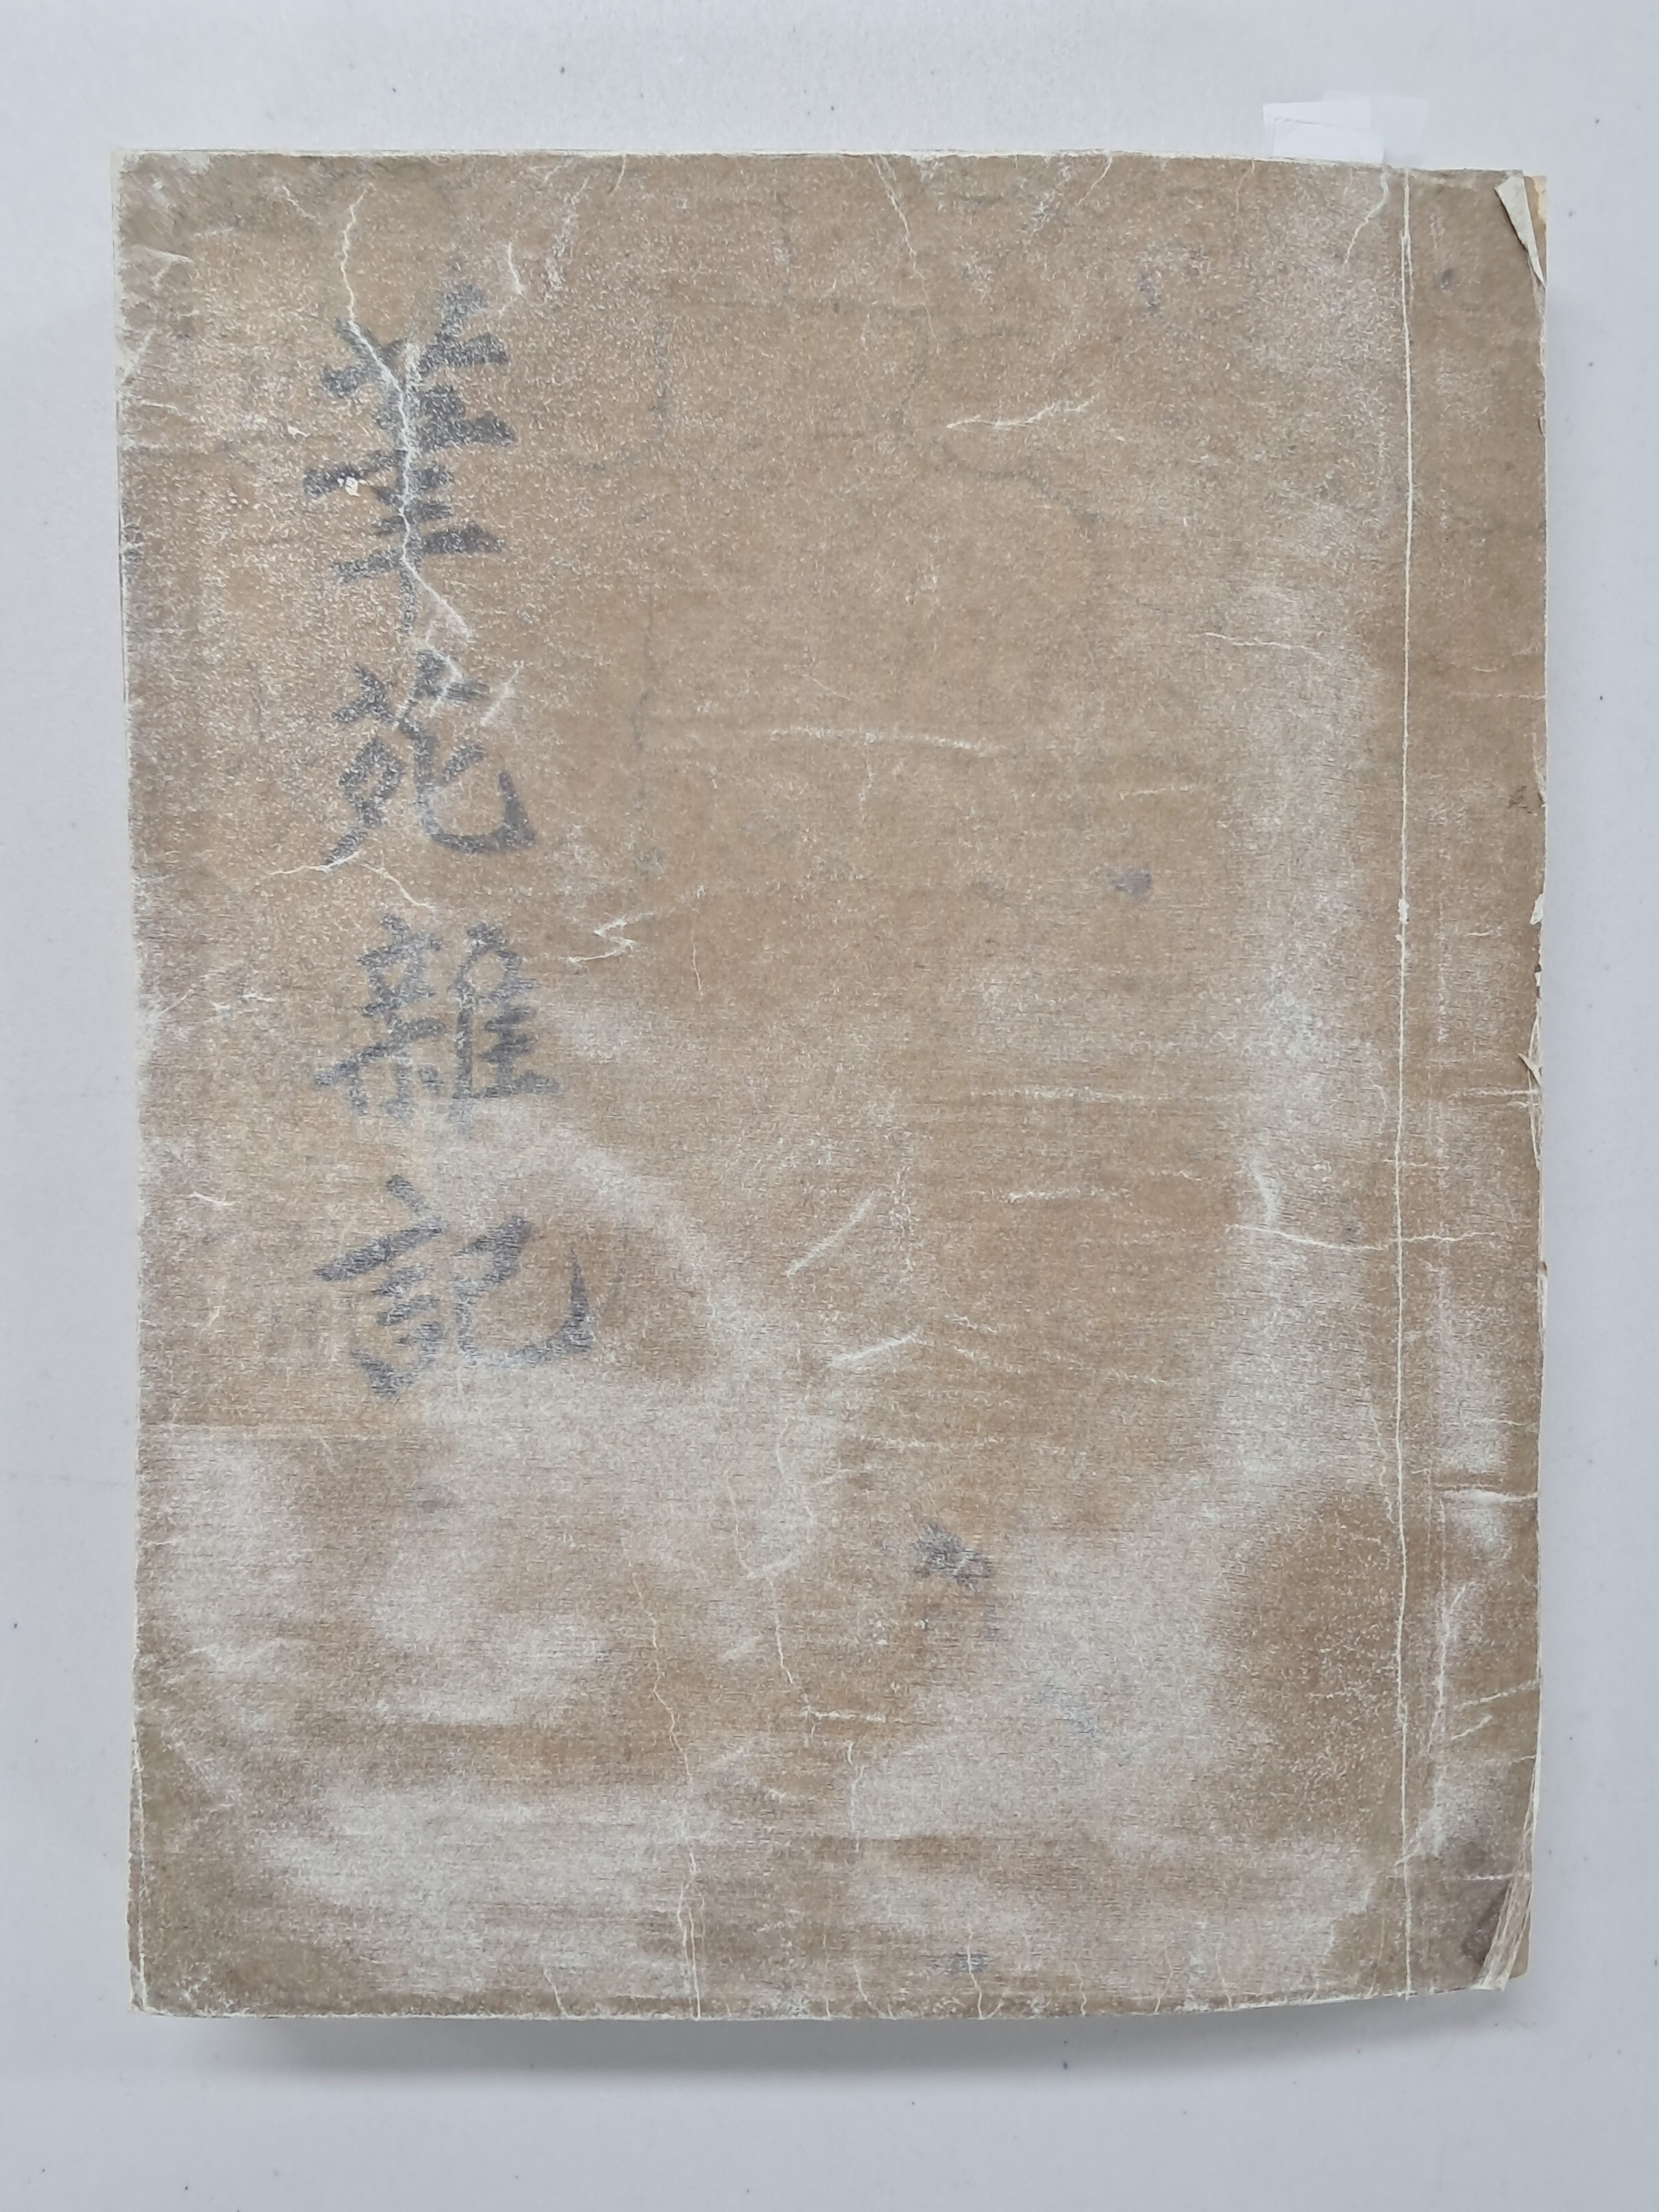 筆苑雜記